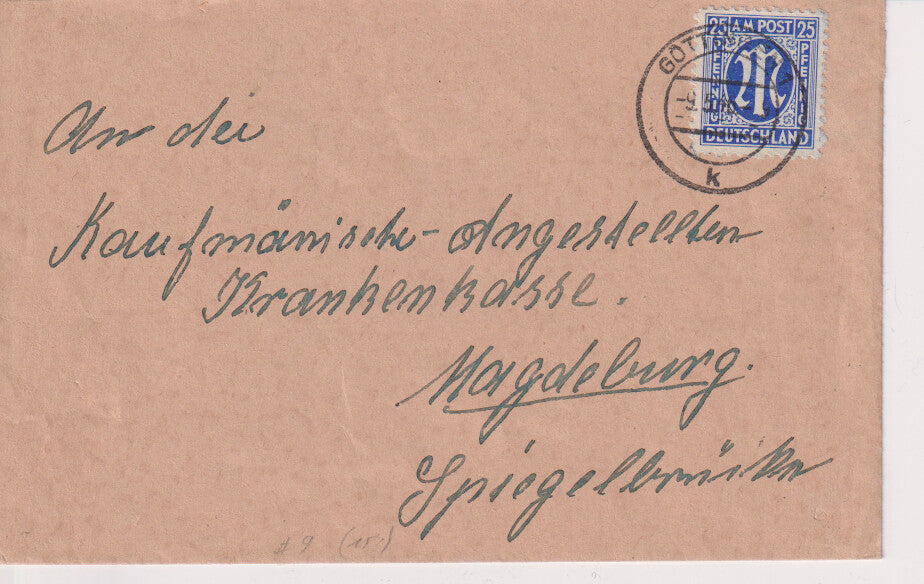 25 AM POST 25
PFENNIG
PFENNIG
DEUTSCHLAND
k
An die
Kaufmänische-Angestellten
Krankenkasse.
Magdeburg.
Spiegelbrücke
# 9 (15.)